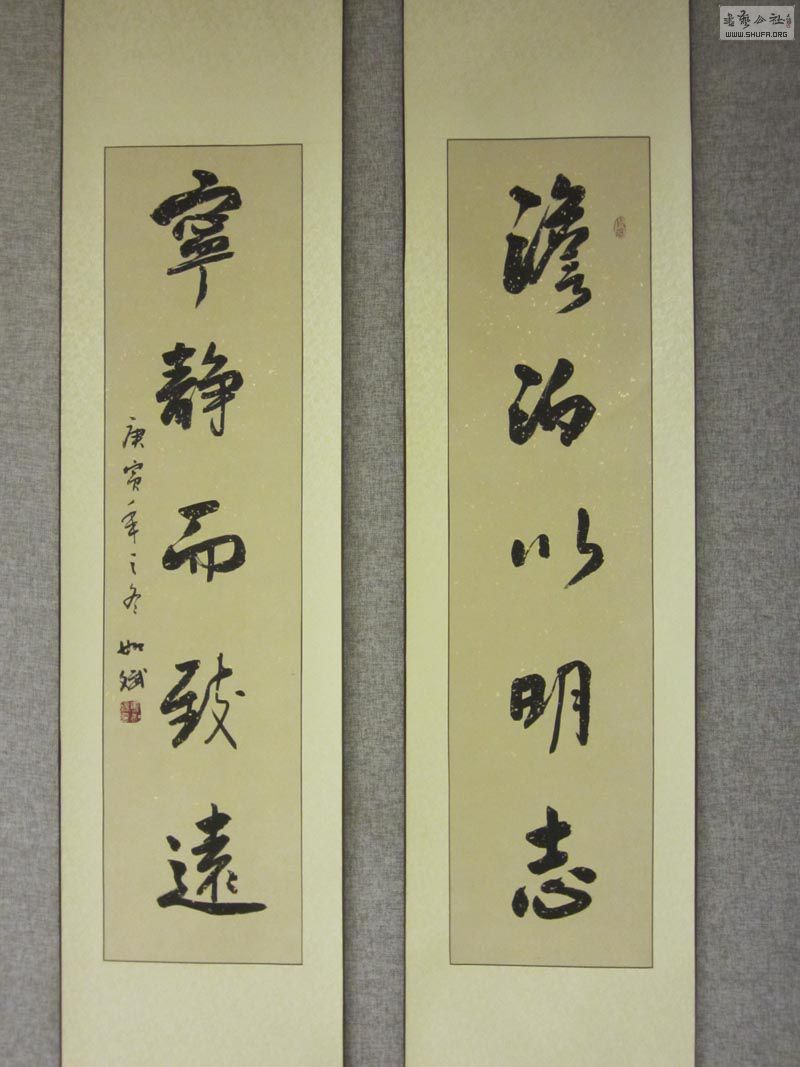 澹泊以明志
寧静而致遠
庚寅年之冬 如斌
书艺公社
WWW.SHUFA.ORG